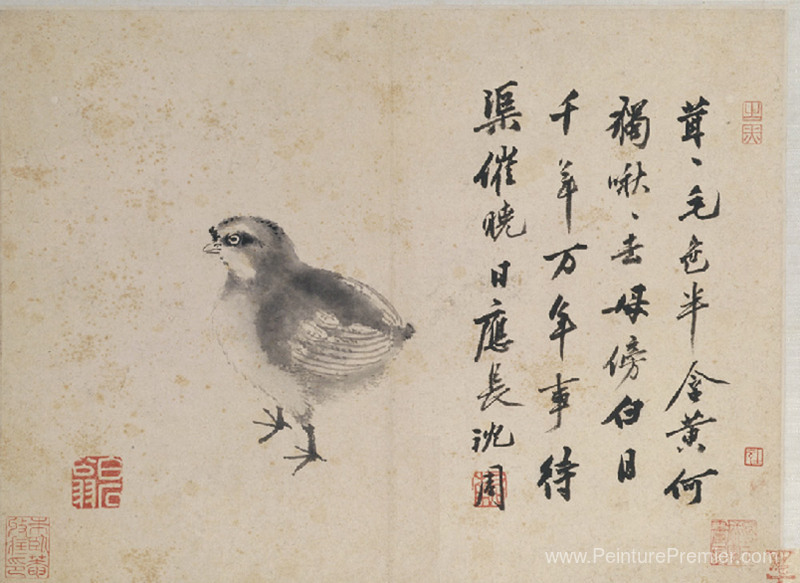 茸〻毛色半含黄何
獨啾〻去母傍白日
千年万年事待
渠催曉日應長沈周
白石翁
www.PeinturePremier.com